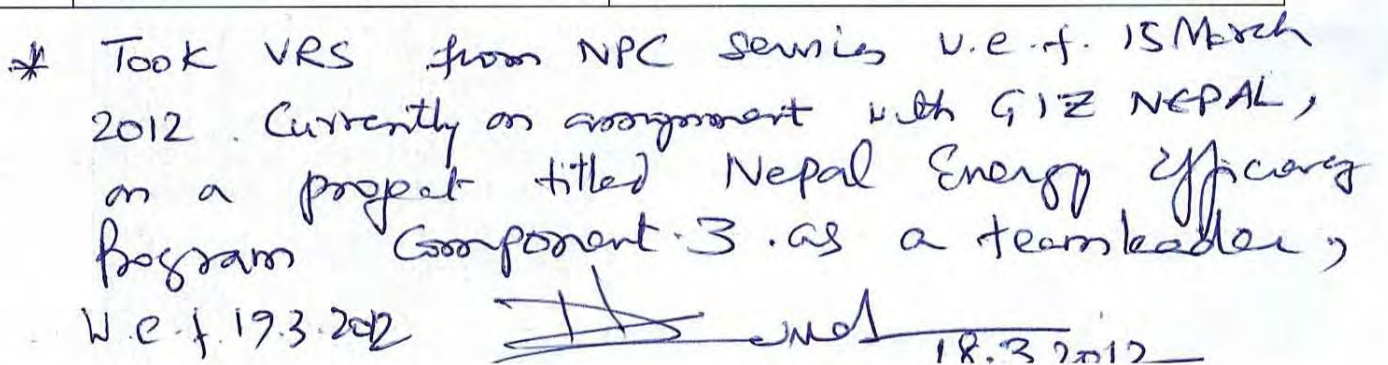 * Took VRS from NPC servies w.e.f. 15 March
2012. Currently on assignment with GIZ NEPAL,
on a project titled Nepal Energy Efficiency
Program Component.3.as a teamleader,
W.e.f. 19.3.2012
18.3.2012